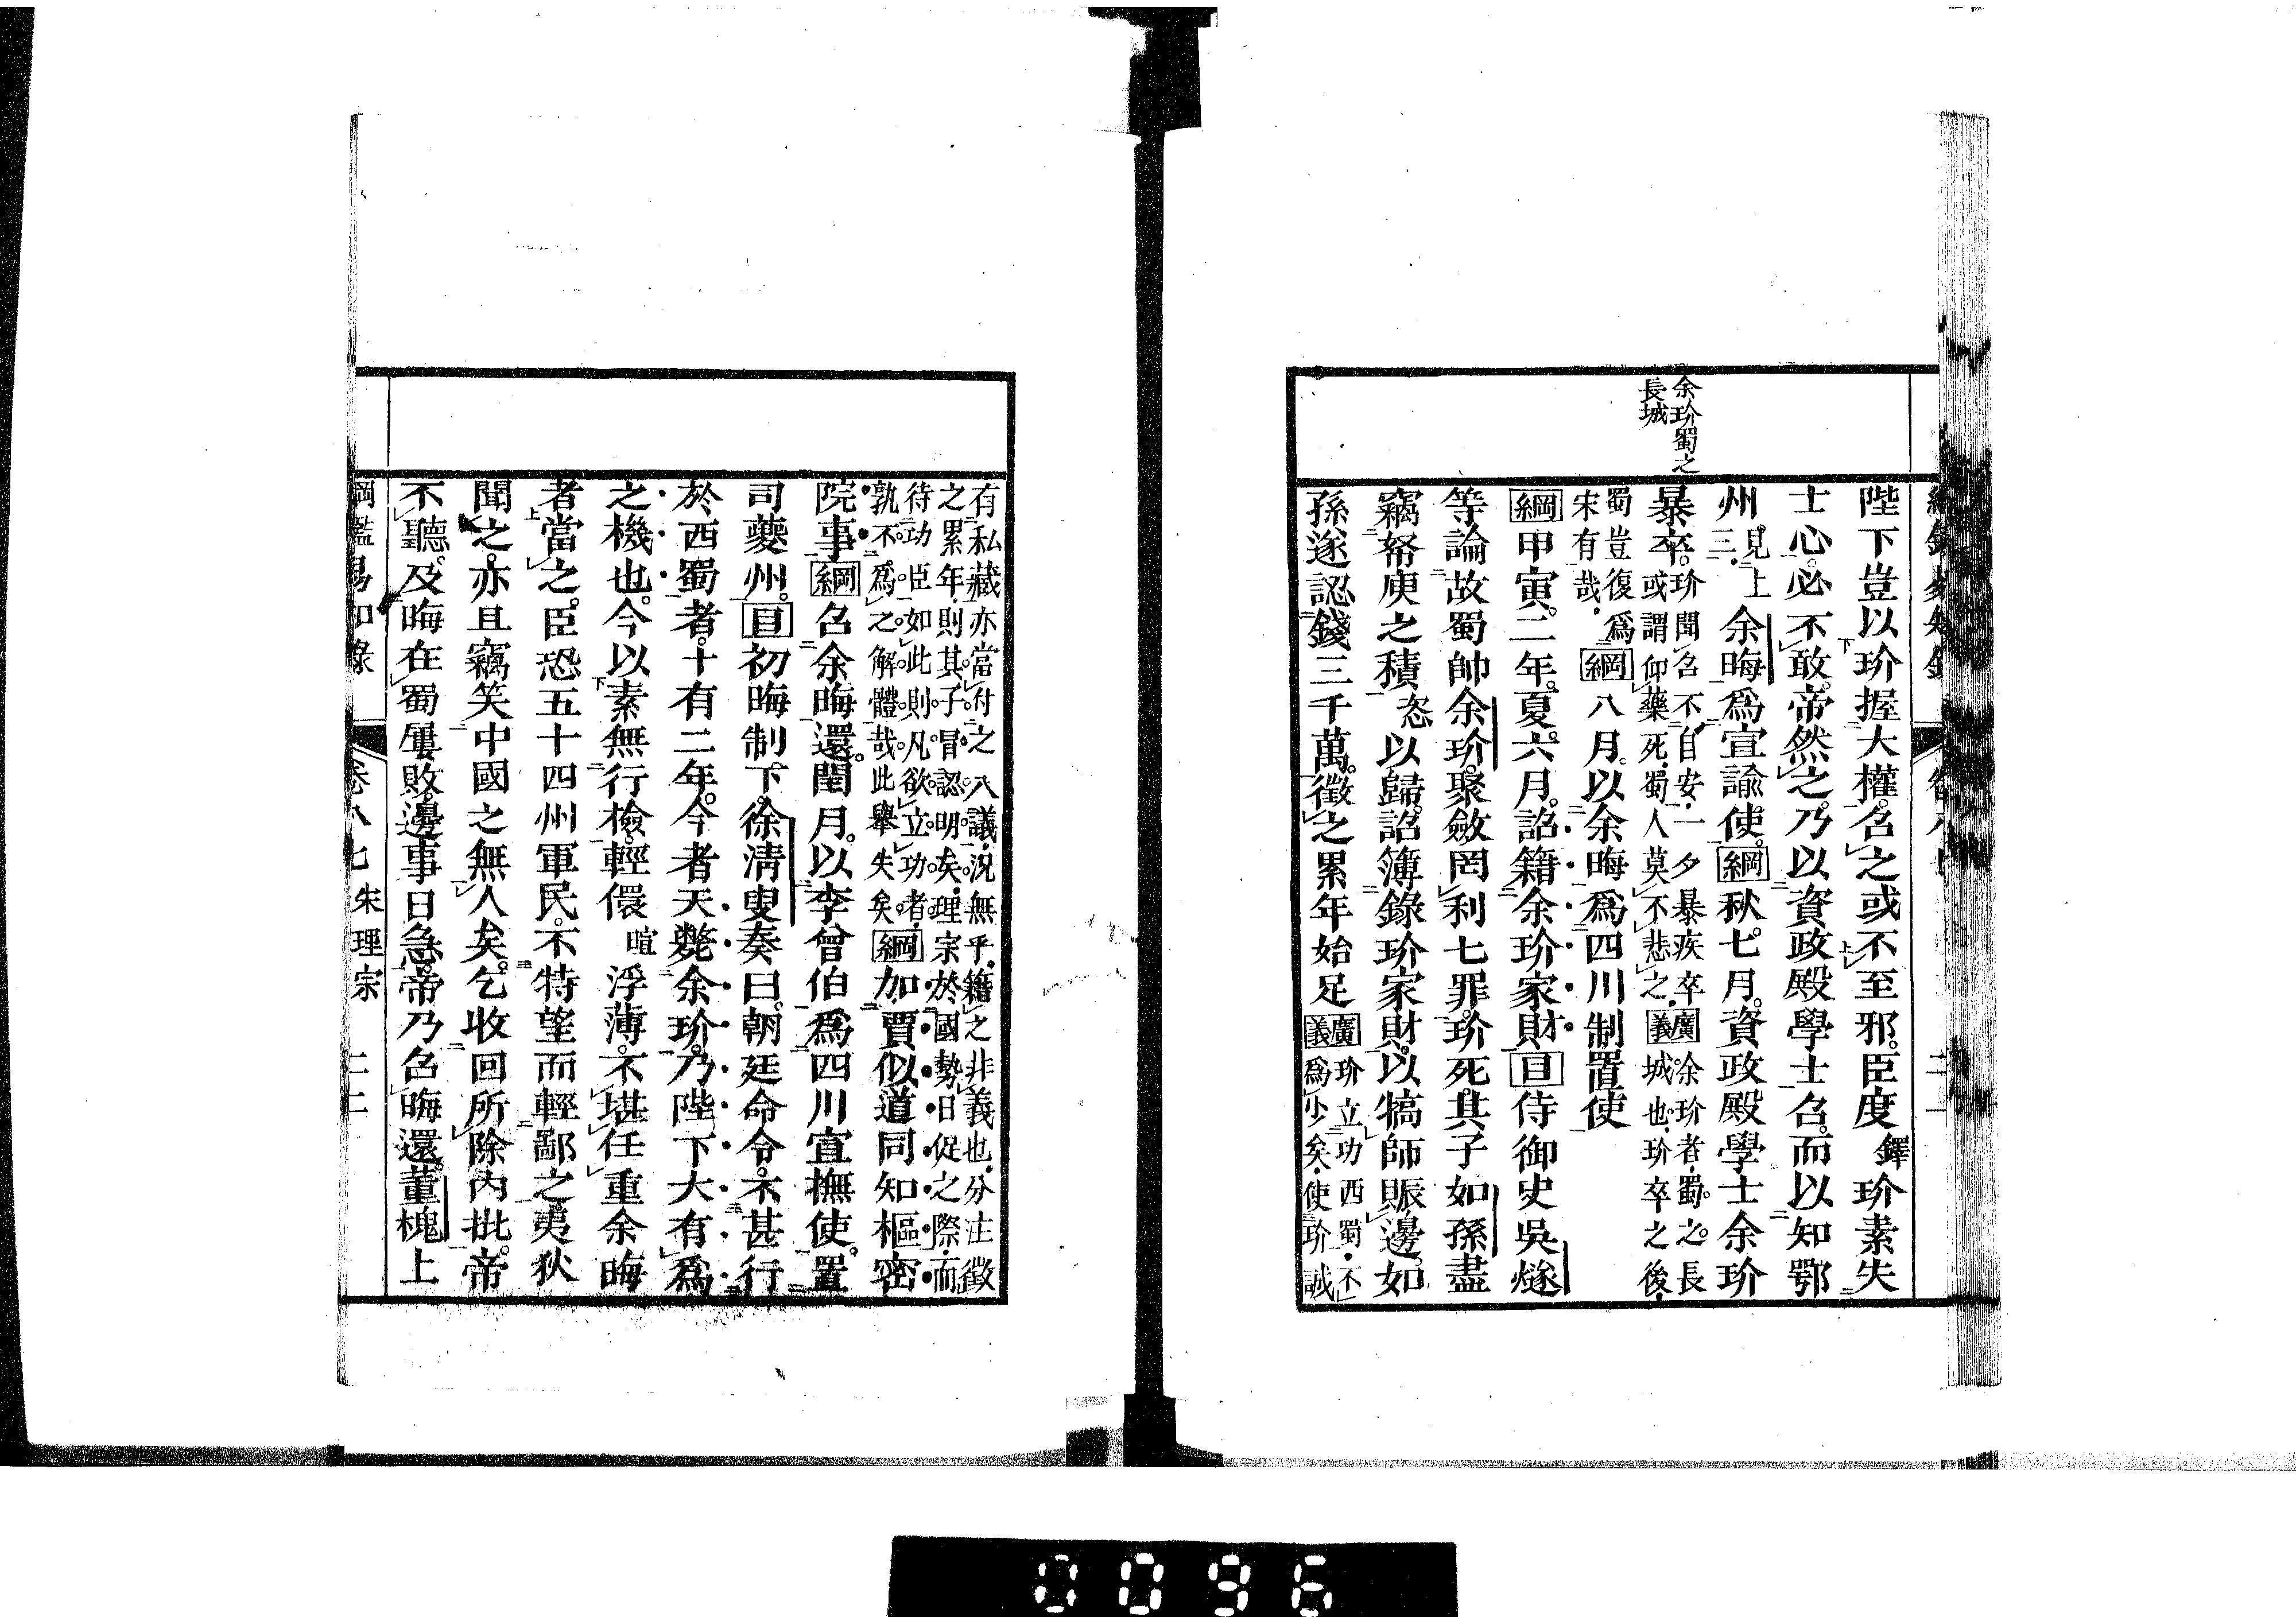 余玠蜀之
長城
陛下豈以玠握大權。召之或不至邪。臣度鐸玠素失
士心。必不敢。帝然之。乃以資政殿學士召。而以知鄂
州。見上三。余晦爲宣諭使。綱秋。七月。資政殿學士余玠
暴卒。玠聞召不自安。一夕暴疾卒。或謂仰藥死。蜀人莫不悲之。廣義余玠者。蜀之長城也。玠卒之後。
蜀豈復爲宋有哉。綱八月。以余晦爲四川制置使
綱甲寅。二年。夏。六月。詔籍余玠家財。目侍御史吳燧
等論故蜀帥余玠。聚斂罔利七罪。玠死。其子如孫盡
竊帑庾之積恣以歸。詔簿錄玠家財。以犒師賑邊。如
孫遂認錢三千萬。徵之累年始足廣義玠立功西蜀。不爲少矣。使玠誠
有私藏亦當付之八議。況無乎。籍之非義也。分注徵
之累年。則其子冒認明矣。理宗於國勢日促之際。而
待功臣如此。則凡欲立功者。
孰不爲之解體哉。此舉失矣。綱加賈似道同知樞密
院事。綱召余晦還。閏月。以李曾伯爲四川宣撫使。置
司夔州。目初晦制下。徐淸叟奏曰。朝廷命令。不甚行
於西蜀者。十有二年。今者天斃余玠。乃陛下大有爲
之機也。今以素無行檢。輕儇暄浮薄。不堪任重余晦
者當之。臣恐五十四州軍民。不特望而輕鄙之。夷狄
聞之。亦且竊笑中國之無人矣。乞收回所除內批。帝
不聽。及晦在蜀屢敗。邊事日急。帝乃召晦還。董槐上
綱鑑易知錄 卷八七 宋理宗 二二
0096